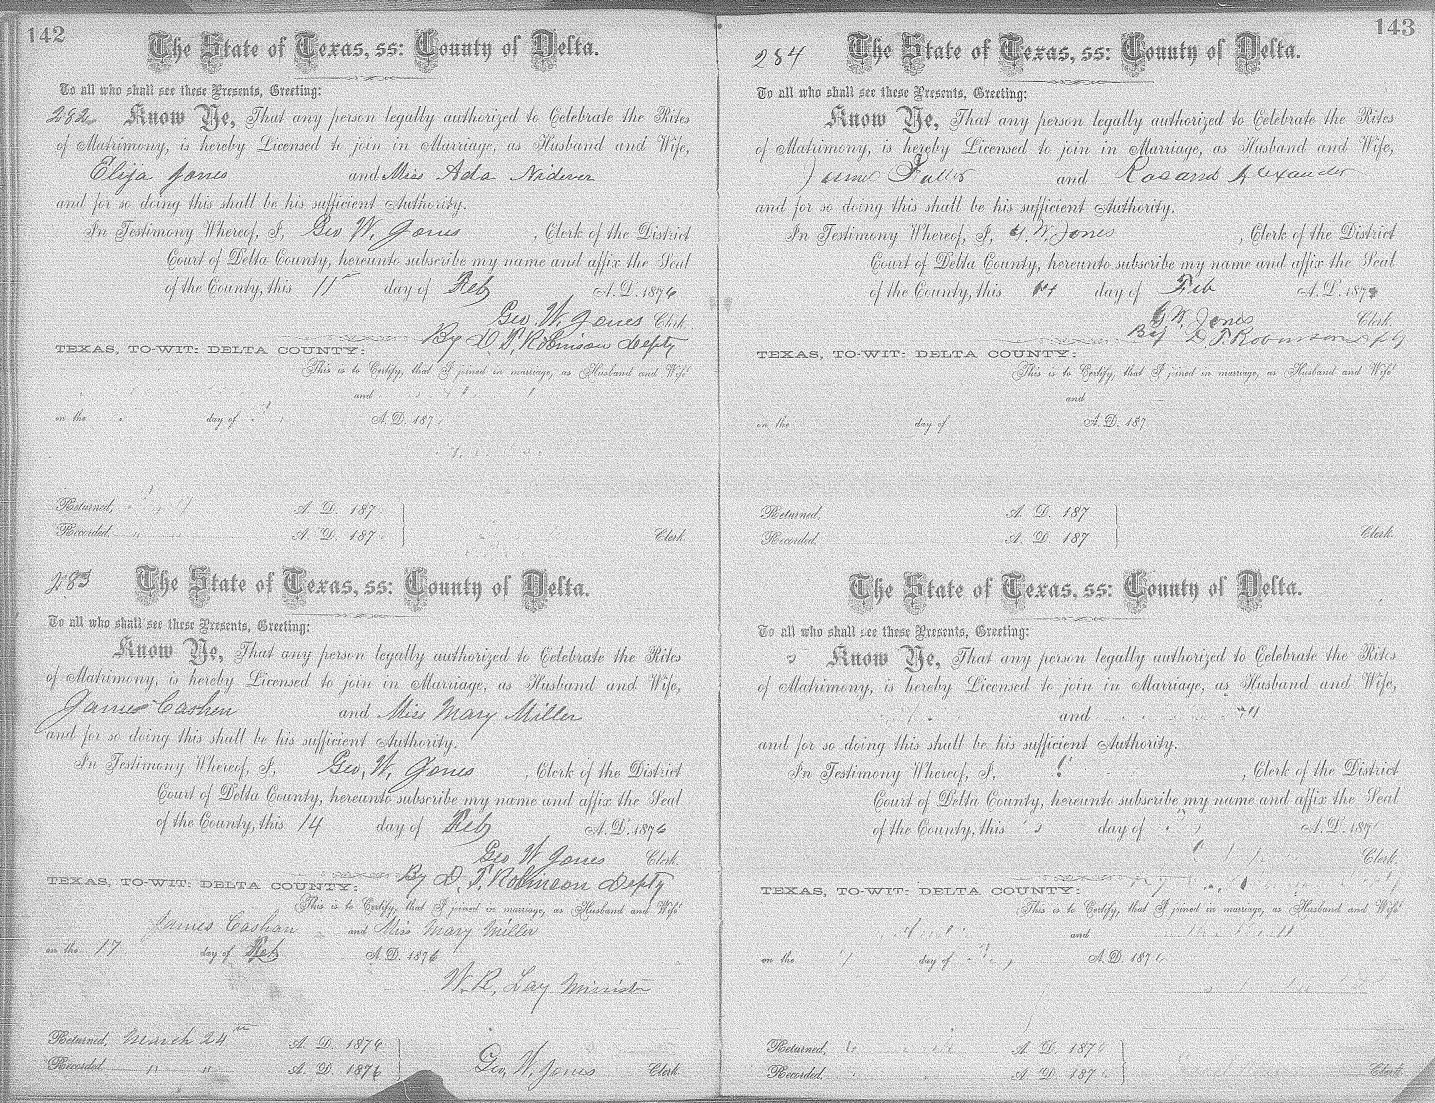 142
The State of Texas, ss: County of Delta.
To all who shall see these Presents, Greeting:
282 Know Ye, That any person legally authorized to Celebrate the Rites
of Matrimony, is hereby Licensed to join in Marriage, as Husband and Wife,
Elija Jones and Miss Ada Nidever
and for so doing this shall be his sufficient Authority.
In Testimony Whereof, I, Geo W. Jones, Clerk of the District
Court of Delta County, hereunto subscribe my name and affix the Seal
of the County, this 11 day of Feb A. D. 1876
Geo. W. Jones Clerk.
By D. T. Robinson Depty
TEXAS, TO-WIT: DELTA COUNTY:
This is to Certify, that I joined in marriage, as Husband and Wife
and
on the day of A. D. 187
Returned, A. D. 187
Recorded, A. D. 187 Clerk.
283 The State of Texas, ss: County of Delta.
To all who shall see these Presents, Greeting:
Know Ye, That any person legally authorized to Celebrate the Rites
of Matrimony, is hereby Licensed to join in Marriage, as Husband and Wife,
James Cashen and Miss Mary Miller
and for so doing this shall be his sufficient Authority.
In Testimony Whereof, I, Geo, W, Jones, Clerk of the District
Court of Delta County, hereunto subscribe my name and affix the Seal
of the County, this 14 day of Feb A. D. 1876
Geo W Jones Clerk.
By D. T. Robinson Depty
TEXAS, TO-WIT: DELTA COUNTY:
This is to Certify, that I joined in marriage, as Husband and Wife
James Cashan and Miss Mary Miller
on the 17 day of Feb A. D. 1876
W. R. Lay Minister
Returned, March 24th A. D. 1876
Recorded " " A. D. 1876 Geo, W, Jones Clerk.
143
284 The State of Texas, ss: County of Delta.
To all who shall see these Presents, Greeting:
Know Ye, That any person legally authorized to Celebrate the Rites
of Matrimony, is hereby Licensed to join in Marriage, as Husband and Wife,
Fuller and Rosand Alexander
and for so doing this shall be his sufficient Authority.
In Testimony Whereof, I, G. W. Jones, Clerk of the District
Court of Delta County, hereunto subscribe my name and affix the Seal
of the County, this day of Feb A. D. 187
G W. Jones Clerk.
By D T Robinson
TEXAS, TO-WIT: DELTA COUNTY:
This is to Certify, that I joined in marriage, as Husband and Wife
and
on the day of A. D. 187
Returned, A. D. 187
Recorded, A. D. 187 Clerk.
The State of Texas, ss: County of Delta.
To all who shall see these Presents, Greeting:
Know Ye, That any person legally authorized to Celebrate the Rites
of Matrimony, is hereby Licensed to join in Marriage, as Husband and Wife,
and
and for so doing this shall be his sufficient Authority.
In Testimony Whereof, I, , Clerk of the District
Court of Delta County, hereunto subscribe my name and affix the Seal
of the County, this day of A. D. 187
Clerk.
TEXAS, TO-WIT: DELTA COUNTY:
This is to Certify, that I joined in marriage, as Husband and Wife
and
on the day of A. D. 187
Returned, A. D. 187
Recorded, A. D. 187 Clerk.